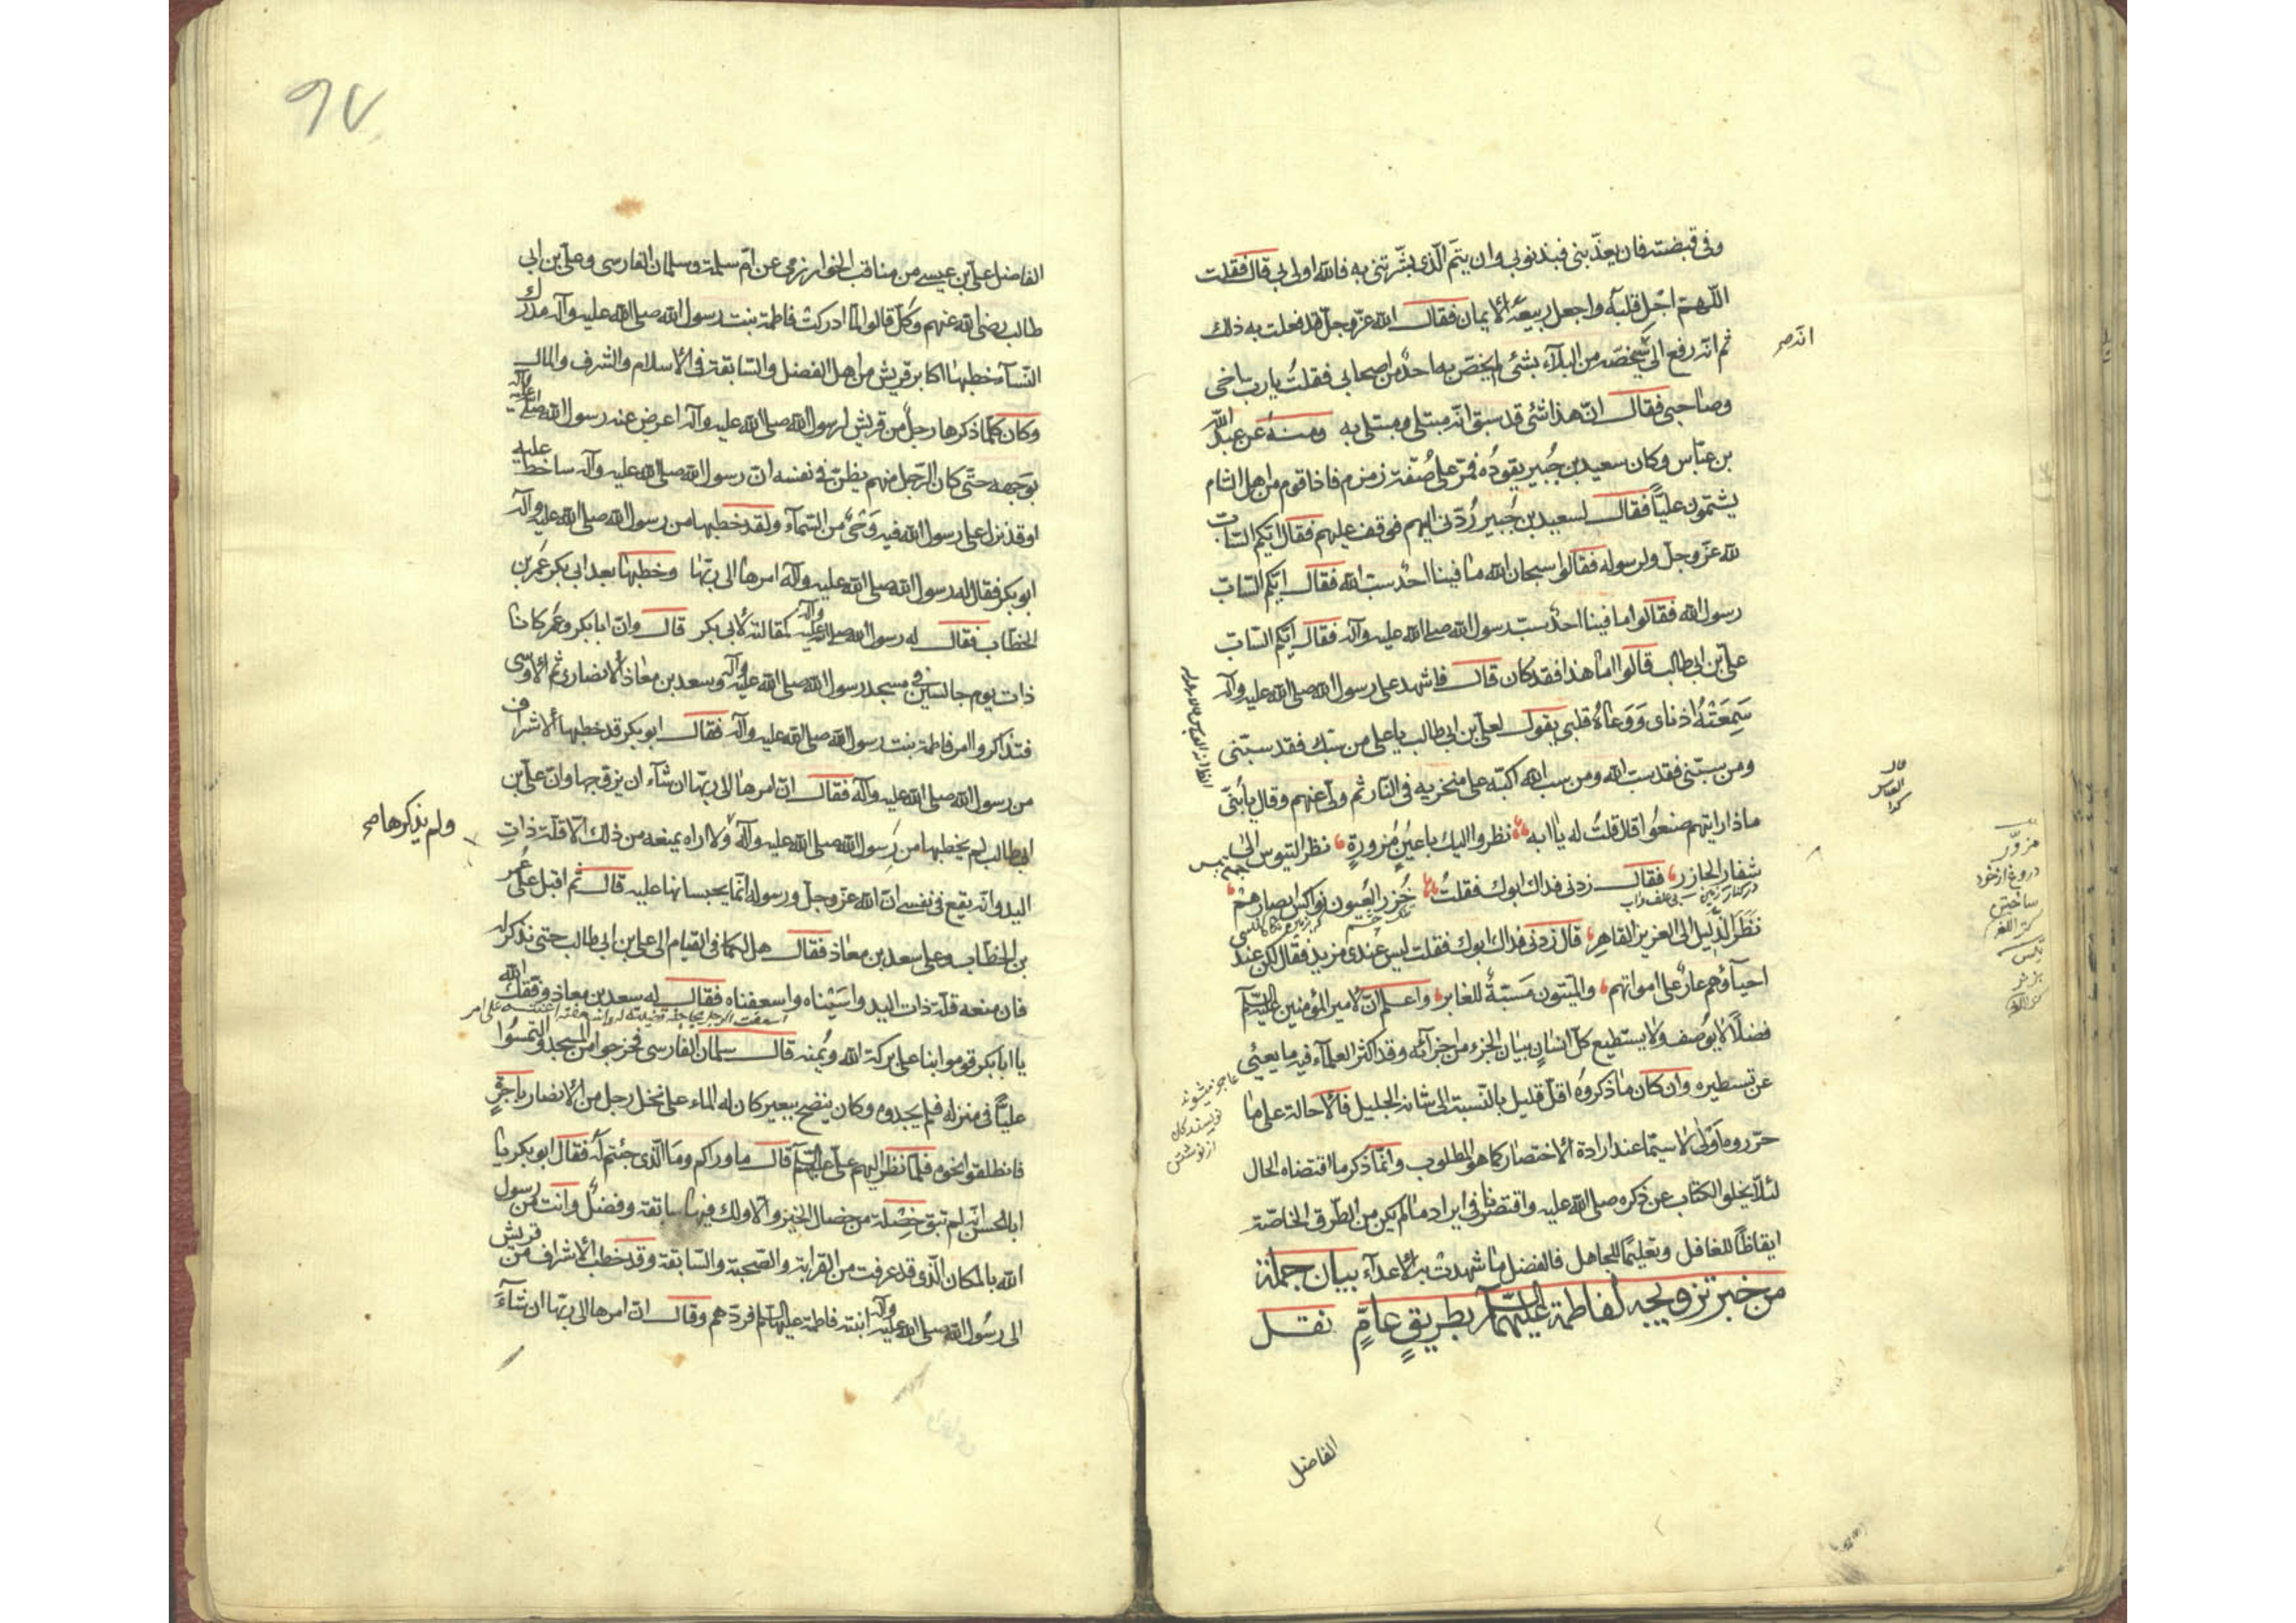 وفى قبضته فان يعذّبنى فبذنوبى وان يتمّ الّذى بشّرتنى به فالله اولى بى قال فقلت
اللّهمّ اجل قلبه واجعل ربيعه الايمان فقال الله عزّوجلّ قد فعلت به ذلك
ثم انّه رفع الىّ سيخصّه من البلاء بشئ لم يخصّ به احدٌ من اصحابى فقلتُ يا ربّ اخى
انّه صح
وصاحبى فقال انّ هذا شئ قد سبق انّه مبتلى ومبتلى به ومنه عن عبد الله
بن عبّاس وكان سعيد بن جُبير يقودُه فمرّ على صُفّة زمزم فاذا قوم من اهل الشام
يشتمون عليّاً فقال لسعيد بن جُبير رُدّنى اليهم فوقف عليهم فقال ايّكم السّابّ
لله عزّوجلّ ولرسوله فقالوا سبحان الله ما فينا احدٌ سبّ الله فقال ايّكم السّابّ
رسول الله فقالوا ما فينا احدٌ سبّ رسول الله صلى الله عليه وآله فقال ايّكم السّابّ
علىّ بن ابى طالب قالوا امّا هذا فقد كان قال فاشهد على رسول الله صلى الله عليه وآله
سَمِعَتْهُ اذناى وَوَعاهُ قلبى يقول لعلىّ بن ابى طالب يا على من سبّك فقد سبّنى
ومن سبّنى فقد سبّ الله ومن سب الله اكبّه على منخريه فى النّار ثم ولّى عنهم وقال يا بُنىّ
ماذا رايتهم صنعوا قال قلتُ له يا ابه نظروا اليك باعينٍ مُزورةٍ نظر التيوس الى
شفار الجازر فقال زدنى فداك ابوك فقلتُ خُزر العُيون نواكس ابصارهم
نظَرَ الذّليل الى العزيز القاهرِ قال زدنى فداك ابوك فقلت ليس عندى مزيد فقال لكن عند
احياؤهم عارٌ على امواتهم والميّتون مَسَبّةٌ للغابر واعلم انّ لامير المؤمنين عليه السلام
فضلًا لا يوُصف ولا يستطيع كلّ انسانٍ بيان الجزء من اجزائه وقد اكثر العلماء فيه ما يعيى
عن تسطيره وان كان ما ذكروُه اقلّ قليل بالنّسبة الى شانه الجليل فالاحالة على ما
حرّروه اَوْلى لا سيّما عند ارادة الاختصار كما هو المطلوب وانّما ذكر ما اقتضاه الحال
لئلّا يخلو الكتاب عن ذكره صلى الله عليه واقتصرنا فى ايراد ما لم يكن من الطّرق الخاصّة
ايقاظًا للغافل وتعليمًا للجاهل فالفضل ما شهدت به الاعداء بيان جملة
من خبر تزويجه لفاطمة عليهما السلام بطريقٍ عامّ نقل
الفاضل
مزوّر
دروغ از خود
ساختن
كنز اللغه
عاجز ميشوند
نويسندكان
از نوشتن
97
الفاضل علىّ بن عيسى من مناقب الخوارزمى عن امّ سلمة وسلمان الفارسى وعلىّ بن ابى
طالب رضى الله عنهم وكلّ قالوا لمّا ادركت فاطمة بنت رسول الله صلى الله عليه وآله مدرك
النّساء خطبها اكابر قريش من اهل الفضل والسّابقة فى الاسلام والشرف والمال
وكان كلّما ذكرها رجلٌ من قريش لرسول الله صلى الله عليه وآله اعرض عنه رسول الله صلى الله عليه وآله
بوَجهه حتّى كان الرّجل منهم يظنّ فى نفسه انّ رسول الله صلى الله عليه وآله ساخط عليه
او قد نزل على رسول الله فيه وَحْىٌ من السّماء ولقد خطبها من رسول الله صلى الله عليه وآله
ابو بكر فقال له رسول الله صلى الله عليه وآله امرها الى ربّها وخطبها بعد ابى بكر عُمر بن
الخطّاب فقال له رسول الله صلى الله عليه وآله كمقالته لابى بكر قال وانّ ابا بكر وعُمر كانا
ذات يوم جالسَين فى مسجد رسول الله صلى الله عليه وآله وسعد بن معاذ الانصارى ثم الاوسى
فتذاكروا امر فاطمة بنت رسول الله صلى الله عليه وآله فقال ابو بكر قد خطبها الاشراف
من رسول الله صلى الله عليه وآله فقال انّ امرها الى ربّها ان شاء ان يزوّجها وانّ علىّ بن
ابى طالب لم يخطبها من رسول الله صلى الله عليه وآله ولا اراه يمنعه من ذلك الّا قلّة ذاتِ
ولم يذكرها صح
اليد وانّه يقع فى نفسى انّ الله عزّوجلّ ورسوله انّما يحبسانها عليه قال ثم اقبل على عُمر
بن الخطّاب وعلى سعد بن معاذ فقال هل لكما فى القيام الى على بن ابى طالب حتى نذكر له
فان منعه قلّة ذات اليد واسَيْناه واسعفناه فقال له سعد بن معاذ وفّقك الله
يا ابا بكر قوموا بنا على بركة الله ويُمنه قال سلمان الفارسى فخرجوا من المسجد والتمسُوا
عليّاً فى منزله فلم يجدوه وكان ينضح ببعير كان له الماء على نخل رجل من الانصار باجرةٍ
فانطلقوا نحوه فلمّا نظر اليهم علىّ عليه السلام قال ما وراكم وما الّذى جئتم له فقال ابو بكر يا
ابا الحسن انّه لم تبق خصْلة من خصال الخير والّا ولك فيها سابقة وفضلٌ وانت من رسول
الله بالمكان الّذى قد عرفت من القرابة والصّحبة والسّابقة وقد خطب الاشراف من قريش
الى رسُول الله صلى الله عليه وآله ابنته فاطمة عليها السلام فردّهم وقال انّ امرها الى ربّها ان شاءَ